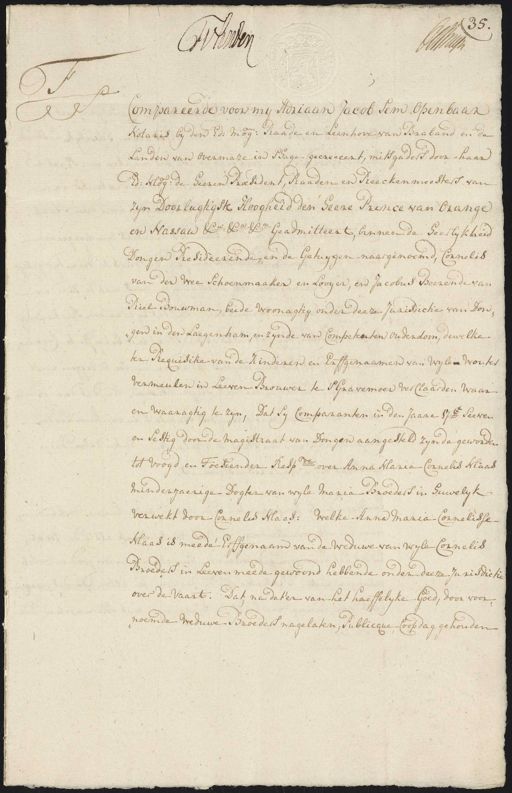 35.
F
Compareerde voor my Adriaan Jacob Sem Openbaar
Notaris by den Ed: Mog: Raade en Leenhove van Braband en de
Landen van Overmaze in s'Hage geeresseert, mitsgaders door haar
Ed: Mog: de Heeren President, Raaden en Reeckenmeesters van
zyn Doorlugtigste Hoogheid den Heere Prence van Orange
en Nassau &c: &c: &c: Geadmitteert, binnen de Heerlykheid
Dongen Presideerende, en de Getuygen naargenoemd, Cornelis
van der Wee Schoenmaaker en Looyer, end Jacobus Beerende van
Riel Bouwman, beide woonagtig onder deeze Jurisdictie van Don-
gen in den Laegenham, en zynde van Competenten Ouderdom, dewelke
ter Requisitie van de Kinderen en Erffgenaamen van wyle Wouter
Vermeulen in Leeven Brouwer te s'Gravemoer verclaarden waar
en waaragtig te zyn, Dat sy Comparanten in den Jaare 17 Seeven
en Sestig door de Magistraat van Dongen aangesteld zynde geworden
tot Voogd en Toesiender Resp over Anna Maria Cornelis Klaas
minderjaerige Dogter van wyle Maria Broeders in Huwelyk
verwekt door Cornelis Klaas: Welke Anna Maria Cornelisse
Klaas is meede Erffgenaam van de Weduwe van wyle Cornelis
Broeders in Leeven meede gewoond hebbende onder deeze Jurisdictie
over de Vaart: Dat na dater van het haeffelyke Goed, door voor-
noemde Weduwe Broeders nagelaten, Publicque Coopdag gehouden